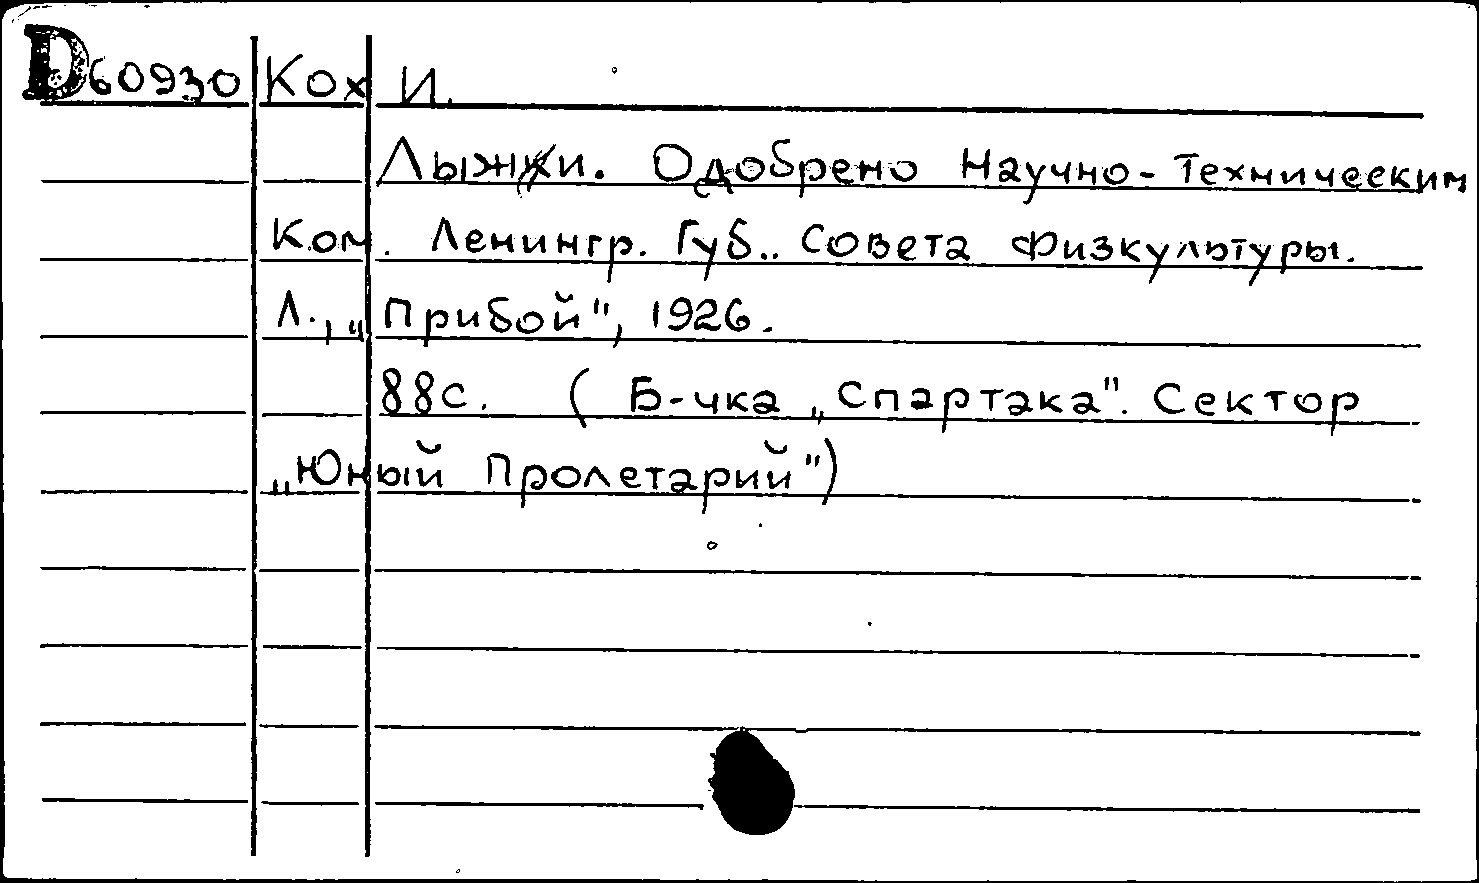 D60930 Кох И.
Лыжи. Одобрено Научно-Техническим
Ком. Ленингр. Губ.. Совета Физкультуры.
Л., „Прибой", 1926.
88с. ( Б-чка „Спартака". Сектор
„Юный Пролетарий")